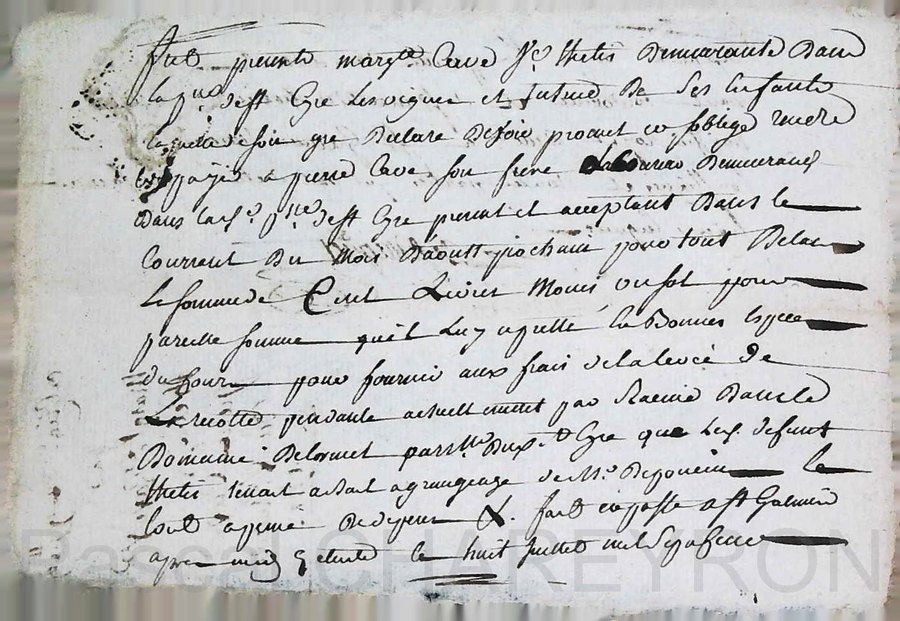 fut presente marg.te Cave V.e thetis Demeurante Dans
la p.sse de st Cyre Les vignes et tutrice De Ses Enfants
laquelle de son gre Declare Devoir promet et soblige rendre
et payer a pierre Cave son frere laboureur Demeurant
Dans lad.e p.sse de st Cyre present et acceptant Dans le
Courrant Du Mois D'aoust prochain pour tout Delai
La somme de Cent Livres Moins un sol pour
pareille somme quil luy a prette En Bonnes Especes
du Cours pour fournir aux frais de la levée de
La recolte pendante actuellement par Racine Dans le
Domaine De parsse Dud. st Cyre que Led. defunt
thetis tenait a grangeage de M.r le
tout a peine De depens &. fait et passé a st Galmier
apres midy le huit juillet mil Sept
Pascal CHAREYRON